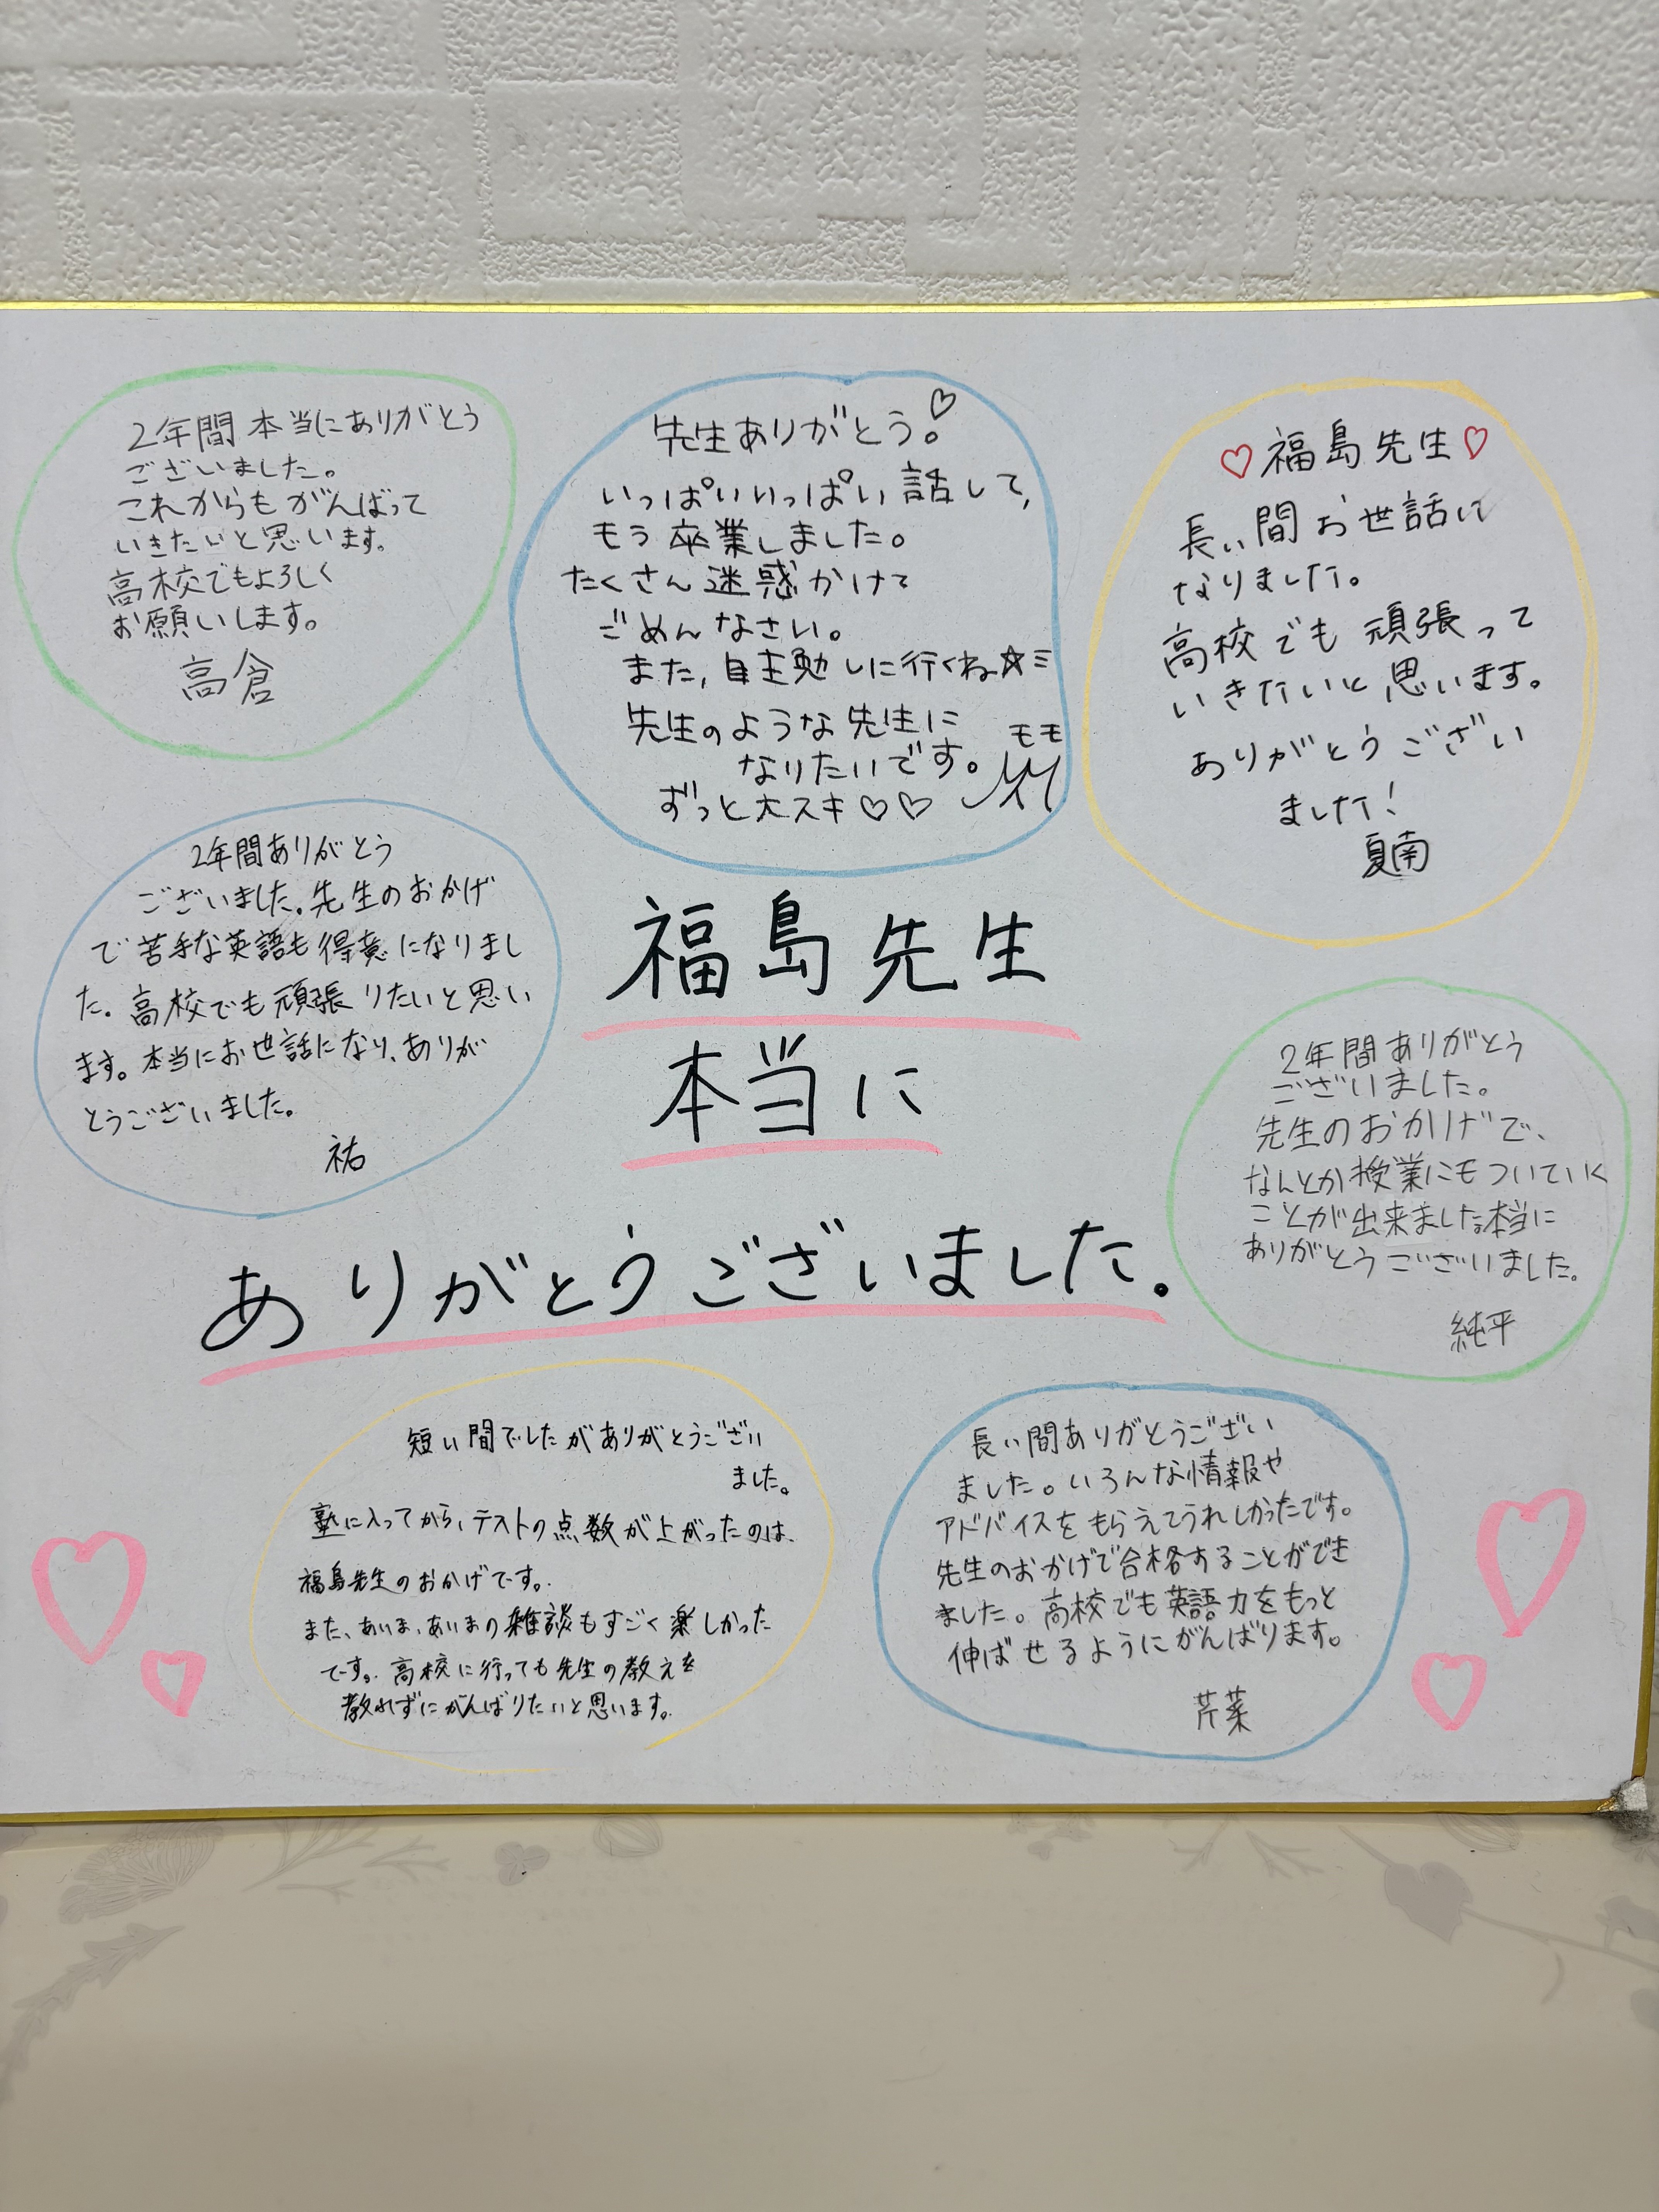 2年間本当にありがとう
ございました。
これからもがんばって
いきたいと思います。
高校でもよろしく
お願いします。
高倉
先生ありがとう。♡
いっぱいいっぱい話して,
もう卒業しました。
たくさん迷惑かけて
ごめんなさい。
また,自主勉しに行くね☆ミ
先生のような先生に
なりたいです。
ずっと大スキ♡♡
モモ
♡福島先生♡
長い間お世話に
なりました。
高校でも頑張って
いきたいと思います。
ありがとうござい
ました!
夏南
2年間ありがとう
ございました。先生のおかげ
で苦手な英語も得意になりまし
た。高校でも頑張りたいと思い
ます。本当にお世話になり、ありが
とうございました。
祐
福島先生
本当に
ありがとうございました。
2年間ありがとう
ございました。
先生のおかげで、
なんとか授業にもついていく
ことが出来ました。本当に
ありがとうございました。
純平
短い間でしたがありがとうござい
ました。
塾に入ってから、テストの点数が上がったのは、
福島先生のおかげです。
また、あいま、あいまの雑談もすごく楽しかった
です。高校に行っても先生の教えを
教れずにがんばりたいと思います。
長い間ありがとうござい
ました。いろんな情報や
アドバイスをもらえてうれしかったです。
先生のおかげで合格することができ
ました。高校でも英語力をもっと
伸ばせるようにがんばります。
芹菜